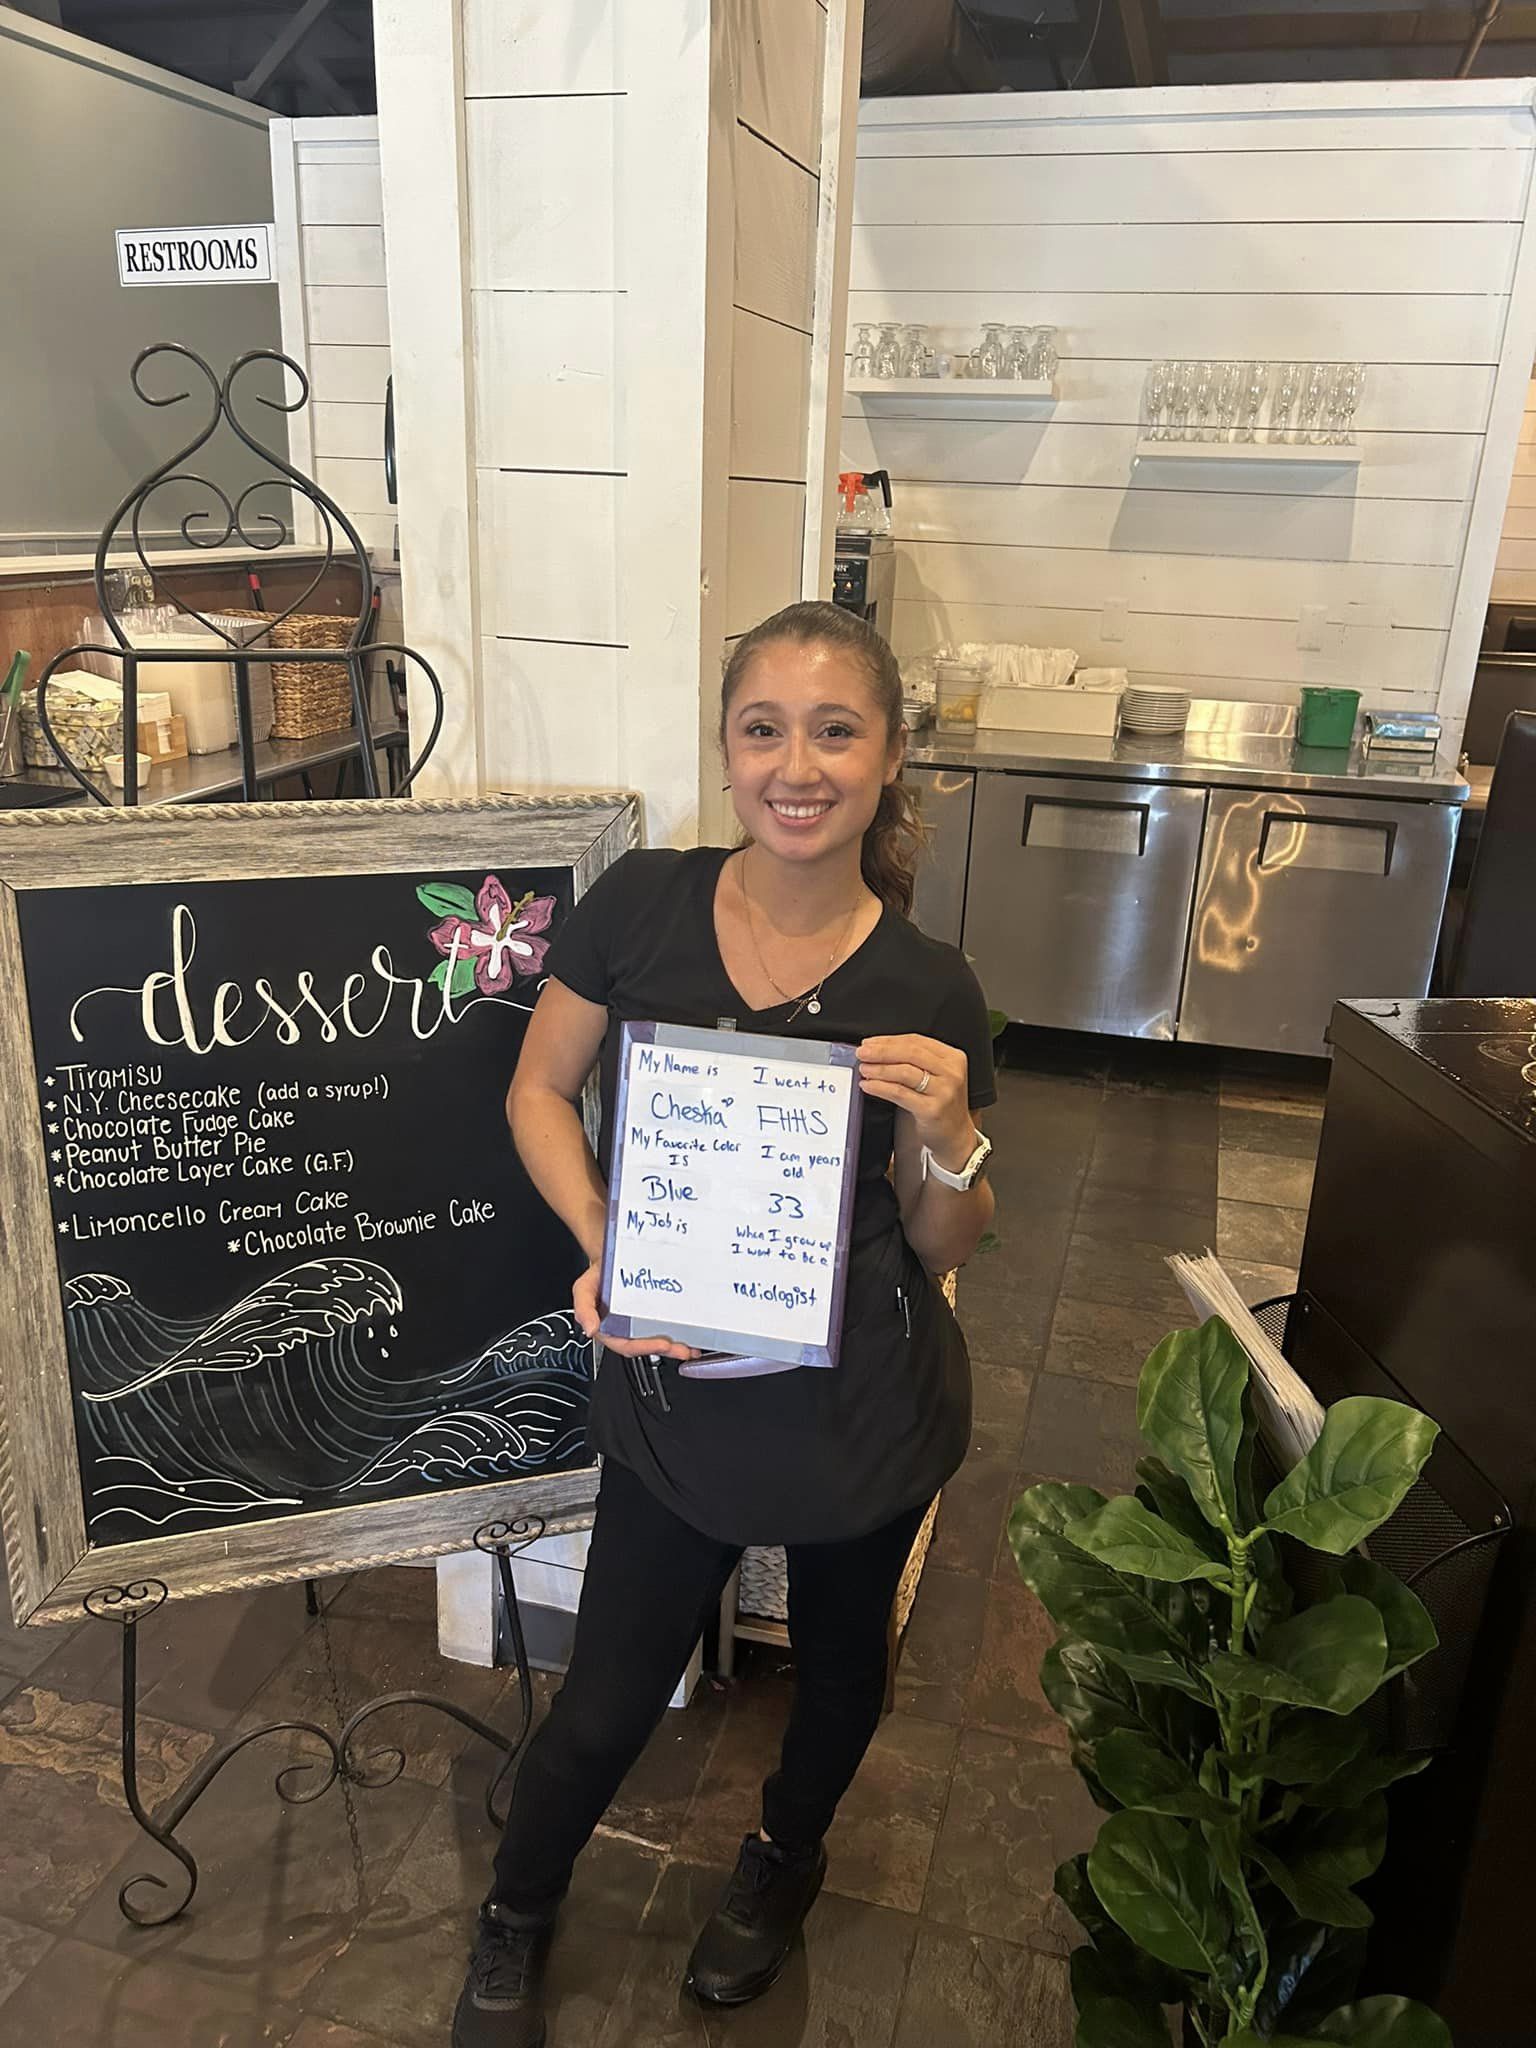 RESTROOMS
dessert
* Tiramisu
* N.Y. Cheesecake (add a syrup!)
* Chocolate Fudge Cake
* Peanut Butter Pie
* Chocolate Layer Cake (G.F.)
* Limoncello Cream Cake
* Chocolate Brownie Cake
My Name is
Cheska
My Favorite Color
IS
Blue
My Job is
Waitress
I went to
FHHS
I am years
old
33
when I grow up
I want to be a
radiologist